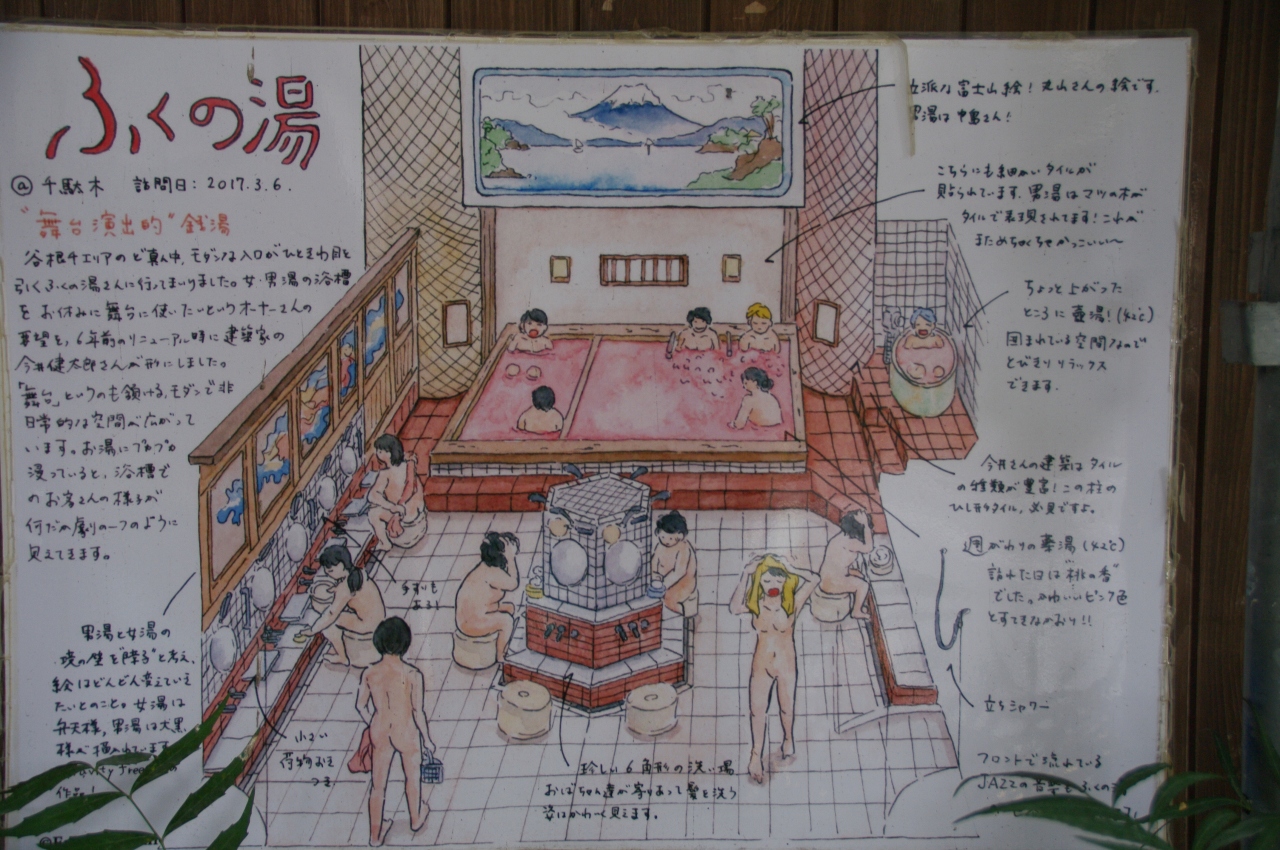 ふくの湯
@千駄木 訪問日：2017.3.6.
"舞台演出的"銭湯
谷根千エリアのど真ん中、モダンな入口がひときわ目を
引くふくの湯さんに行ってまいりました。女・男湯の浴槽
をお休みに舞台に使いたいというオーナーさんの
要望を、6年前のリニューアル時に建築家の
今井健太郎さんが形にしました。
「舞台」というのも頷ける、モダンで非
日常的な空間が広がって
います。お湯にプカプカ
浸っていると、浴槽で
のお客さんの様子が
何だか劇の一つのように
見えてきます。
男湯と女湯の
境の壁を"障子"と考え、
絵はどんどん変えていき
たいとのこと。女湯は
弁天様、男湯は大黒
様が描かれています
Gravity free
作品!
立派な富士山絵！丸山さんの絵です。
男湯は中島さん！
こちらにも細かいタイルが
貼られています。男湯はマツの木が
タイルで表現されてます！これが
まためちゃくちゃかっこいい〜
ちょっと上がった
ところに壷湯！(42℃)
囲まれている空間なので
とびきりリラックス
できます。
今井さんの建築はタイル
の種類が豊富！この柱の
ひし形タイル、必見ですよ。
週がわりの薬湯(42℃)
訪れた日は"桃の香"
でした。かわいいピンク色
とすてきなかおり!!
立ちシャワー
手すりも
ある！
小さい
荷物おき
つき
珍しい6角形の洗い場
おばちゃん達が寄りあって髪を洗う
姿はかわいく見えます。
フロントで流れている
JAZZの音楽もふくの